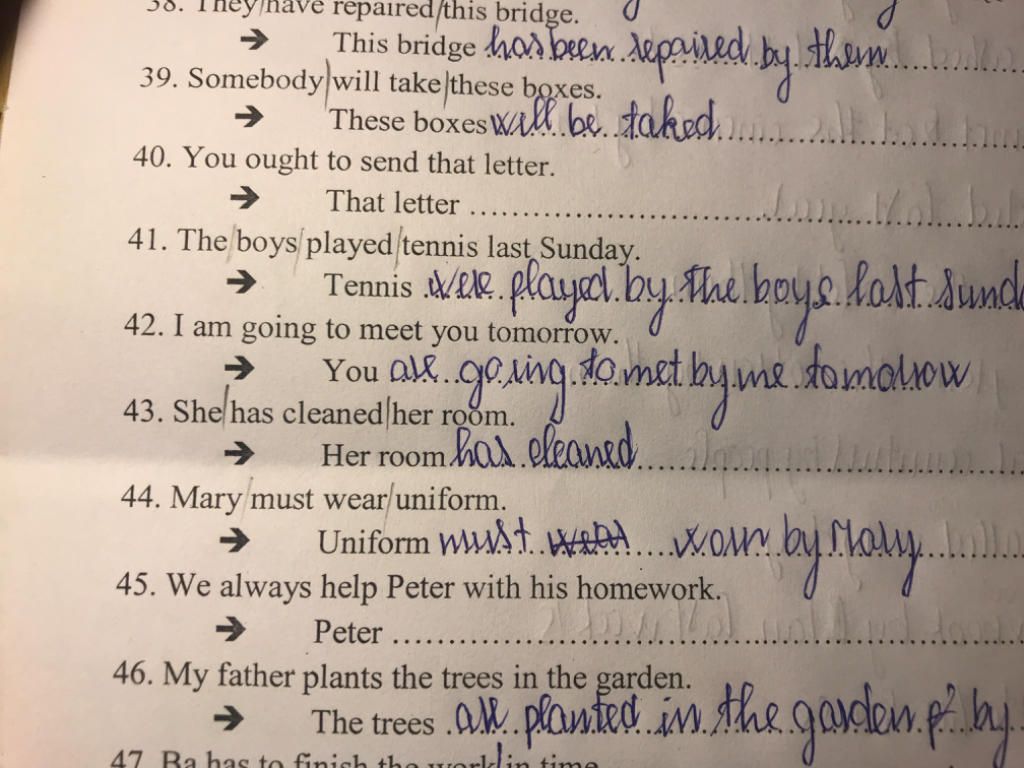 38. They have repaired this bridge.
→ This bridge has been repaired by them
39. Somebody will take these boxes.
→ These boxes will be taked
40. You ought to send that letter.
→ That letter
41. The boys played tennis last Sunday.
→ Tennis were played by the boys last Sund
42. I am going to meet you tomorrow.
→ You are going to met by me tomorrow
43. She has cleaned her room.
→ Her room has cleaned
44. Mary must wear uniform.
→ Uniform must worn by Mary
45. We always help Peter with his homework.
→ Peter
46. My father plants the trees in the garden.
→ The trees are planted in the garden by
47. Ba has to finish the work in time